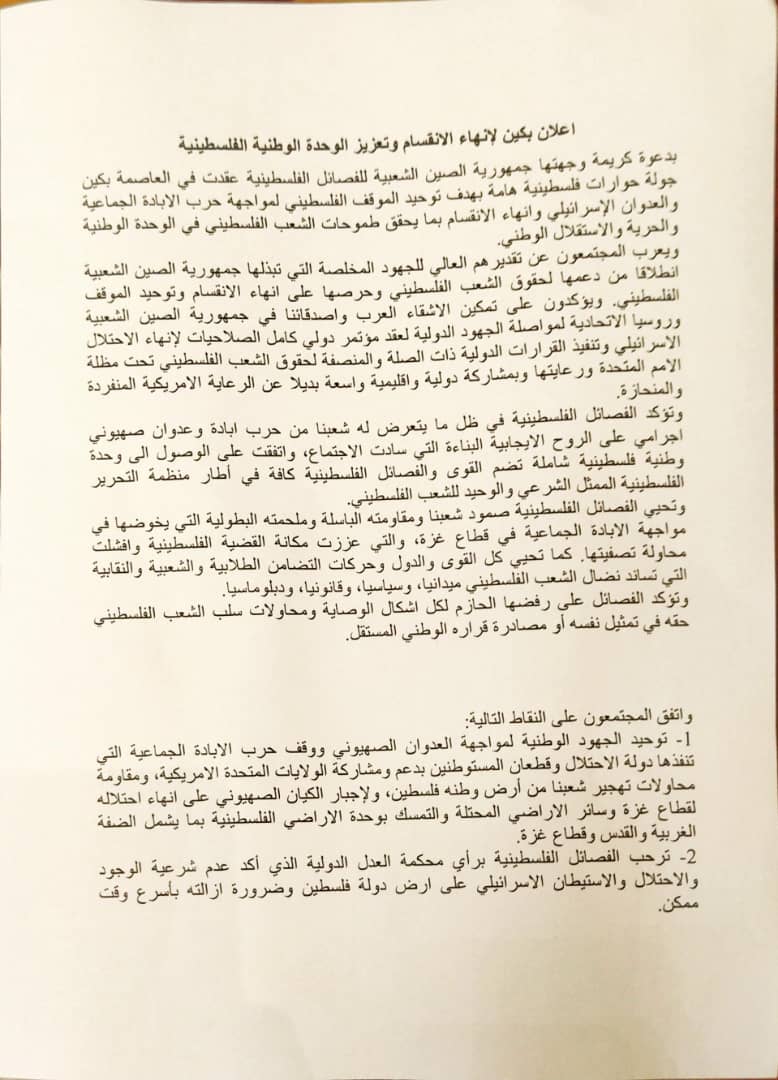 اعلان بكين لإنهاء الانقسام وتعزيز الوحدة الوطنية الفلسطينية
بدعوة كريمة وجهتها جمهورية الصين الشعبية للفصائل الفلسطينية عقدت في العاصمة بكين
جولة حوارات فلسطينية هامة بهدف توحيد الموقف الفلسطيني لمواجهة حرب الابادة الجماعية
والعدوان الإسرائيلي وانهاء الانقسام بما يحقق طموحات الشعب الفلسطيني في الوحدة الوطنية
والحرية والاستقلال الوطني.
ويعرب المجتمعون عن تقدير هم العالي للجهود المخلصة التي تبذلها جمهورية الصين الشعبية
انطلاقا من دعمها لحقوق الشعب الفلسطيني وحرصها على انهاء الانقسام وتوحيد الموقف
الفلسطيني. ويؤكدون على تمكين الاشقاء العرب واصدقائنا في جمهورية الصين الشعبية
وروسيا الاتحادية لمواصلة الجهود الدولية لعقد مؤتمر دولي كامل الصلاحيات لإنهاء الاحتلال
الاسرائيلي وتنفيذ القرارات الدولية ذات الصلة والمنصفة لحقوق الشعب الفلسطيني تحت مظلة
الامم المتحدة ورعايتها وبمشاركة دولية واقليمية واسعة بديلا عن الرعاية الامريكية المنفردة
والمنحازة.
وتؤكد الفصائل الفلسطينية في ظل ما يتعرض له شعبنا من حرب ابادة وعدوان صهيوني
اجرامي على الروح الايجابية البناءة التي سادت الاجتماع، واتفقت على الوصول الى وحدة
وطنية فلسطينية شاملة تضم القوى والفصائل الفلسطينية كافة في أطار منظمة التحرير
الفلسطينية الممثل الشرعي والوحيد للشعب الفلسطيني.
وتحيي الفصائل الفلسطينية صمود شعبنا ومقاومته الباسلة وملحمته البطولية التي يخوضها في
مواجهة الابادة الجماعية في قطاع غزة، والتي عززت مكانة القضية الفلسطينية وافشلت
محاولة تصفيتها. كما تحيي كل القوى والدول وحركات التضامن الطلابية والشعبية والنقابية
التي تساند نضال الشعب الفلسطيني ميدانيا، وسياسيا، وقانونيا، ودبلوماسيا.
وتؤكد الفصائل على رفضها الحازم لكل اشكال الوصاية ومحاولات سلب الشعب الفلسطيني
حقه في تمثيل نفسه أو مصادرة قراره الوطني المستقل.
واتفق المجتمعون على النقاط التالية:
1- توحيد الجهود الوطنية لمواجهة العدوان الصهيوني ووقف حرب الابادة الجماعية التي
تنفذها دولة الاحتلال وقطعان المستوطنين بدعم ومشاركة الولايات المتحدة الامريكية، ومقاومة
محاولات تهجير شعبنا من أرض وطنه فلسطين، ولإجبار الكيان الصهيوني على انهاء احتلاله
لقطاع غزة وسائر الاراضي المحتلة والتمسك بوحدة الاراضي الفلسطينية بما يشمل الضفة
الغربية والقدس وقطاع غزة.
2- ترحب الفصائل الفلسطينية برأي محكمة العدل الدولية الذي أكد عدم شرعية الوجود
والاحتلال والاستيطان الاسرائيلي على ارض دولة فلسطين وضرورة ازالته بأسرع وقت
ممكن.